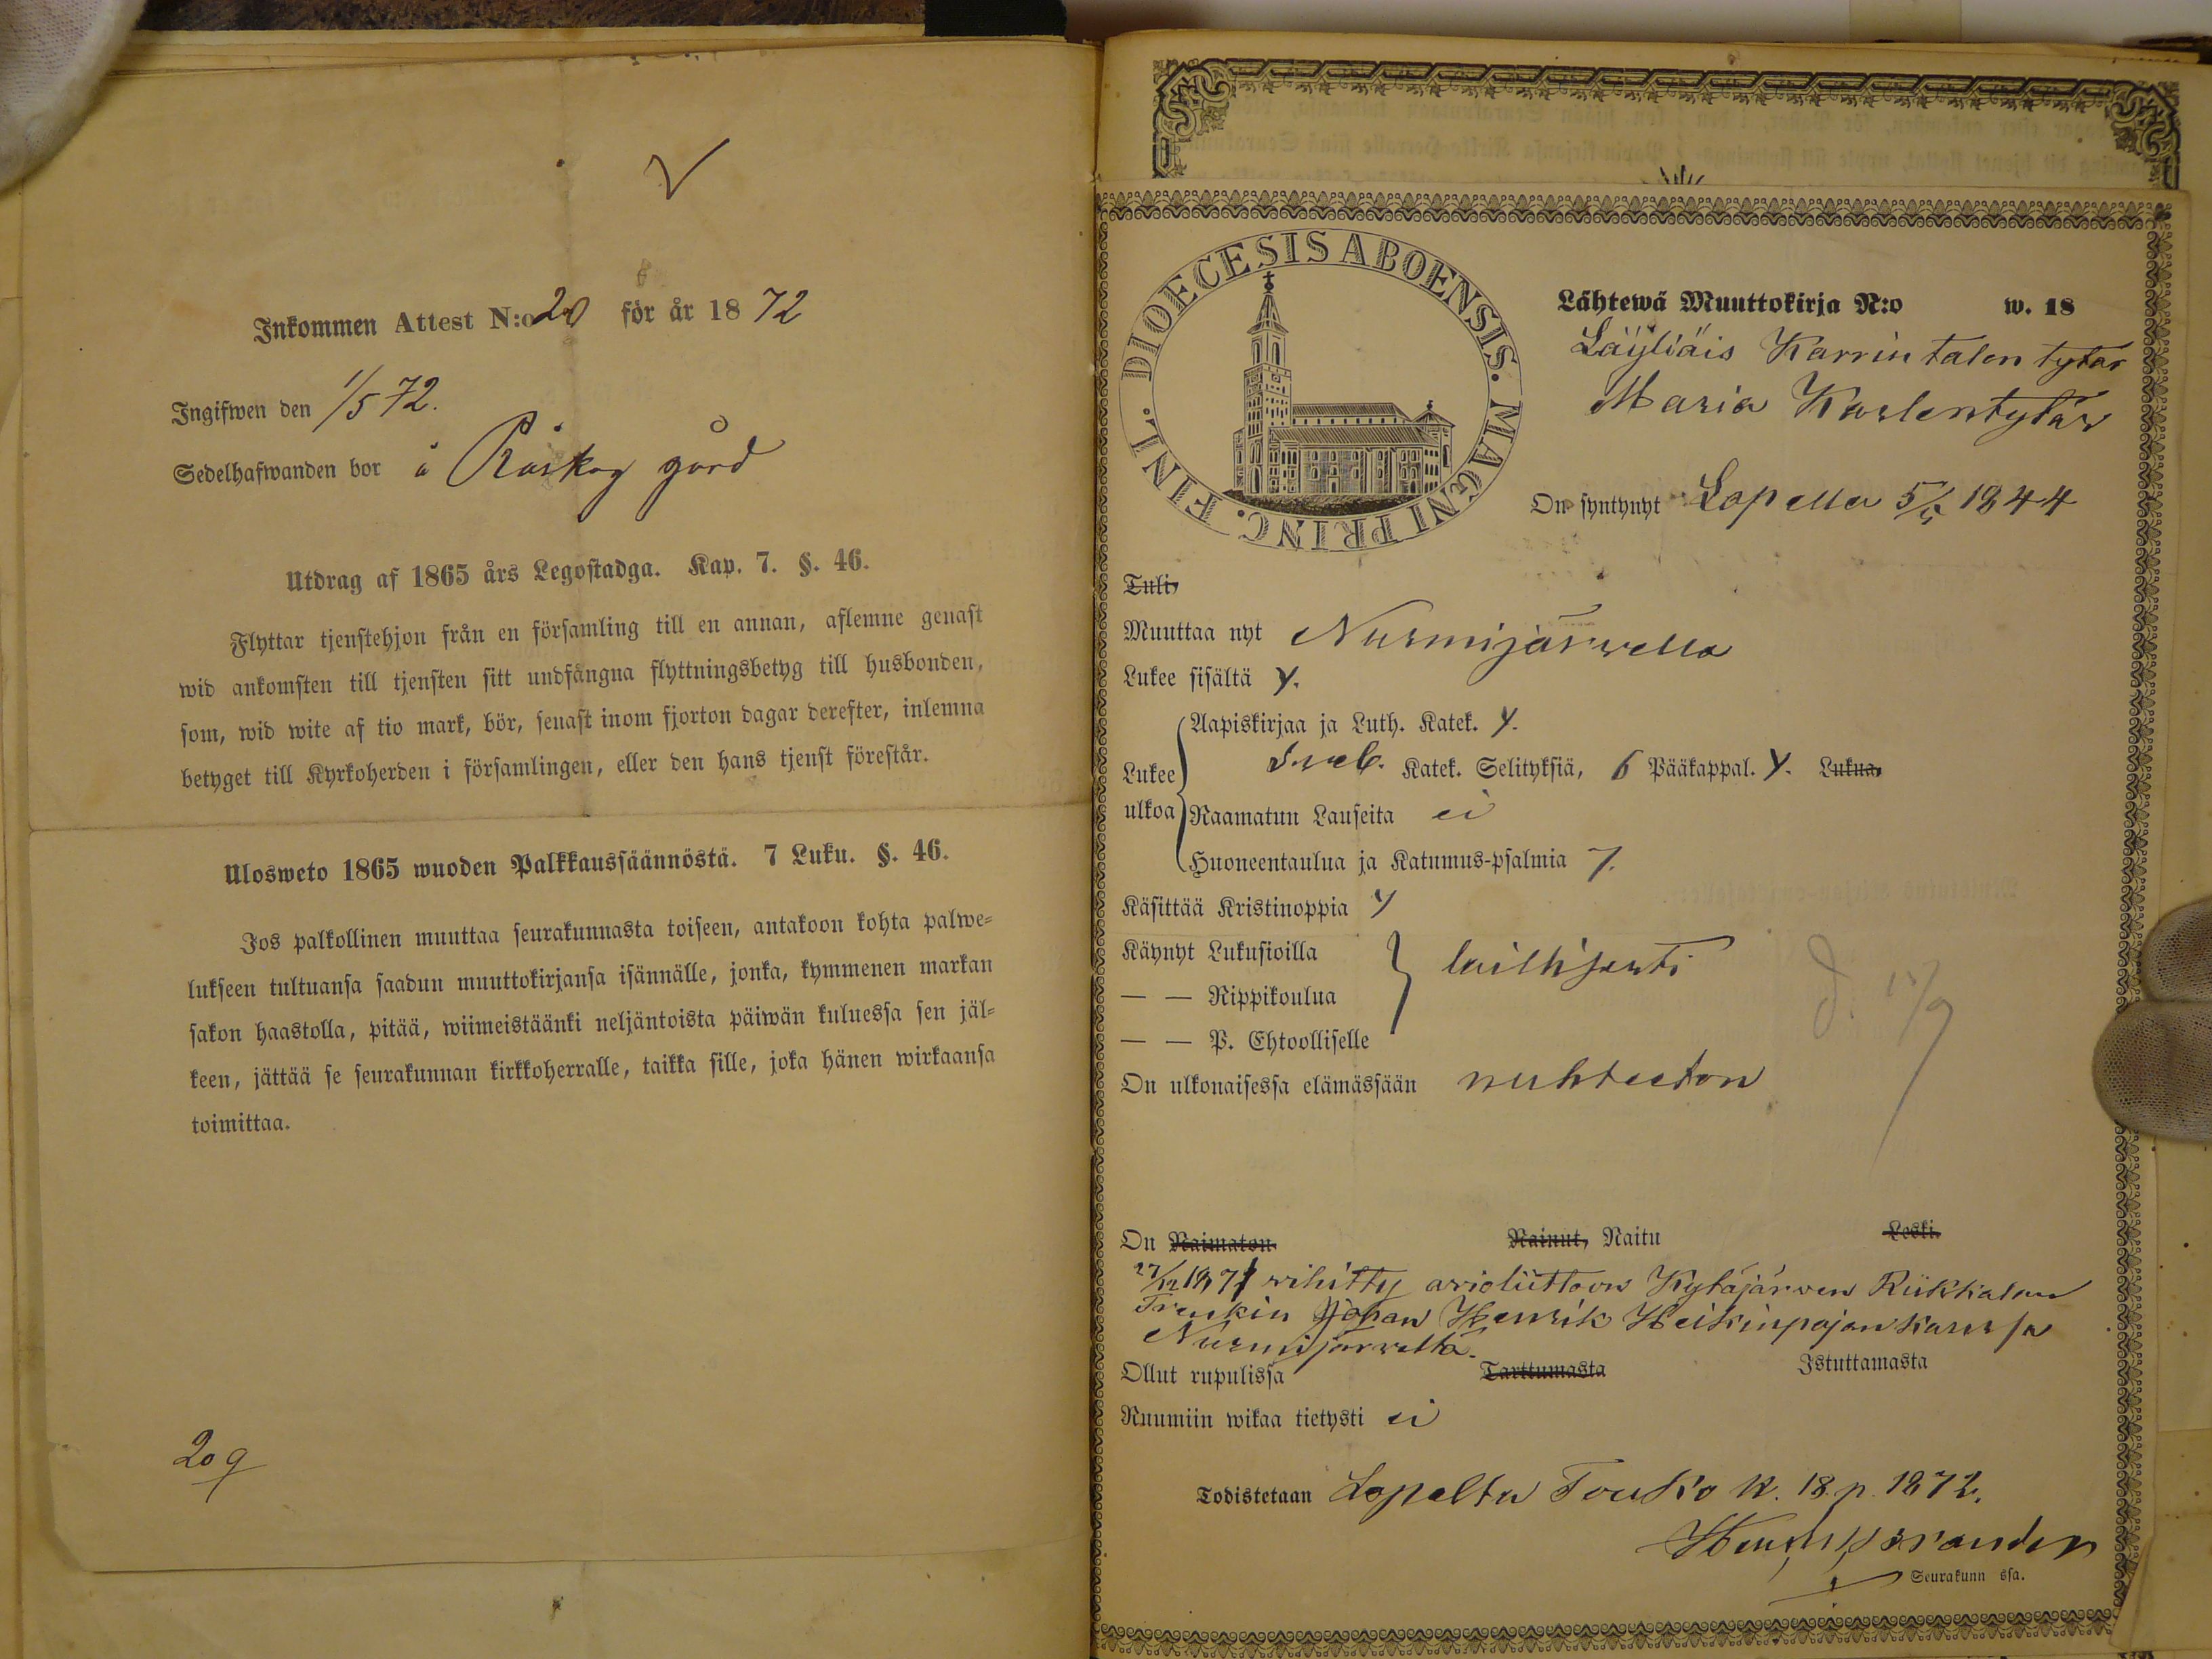 Inkommen Attest N:o 20 för år 1872
Ingifwen den 1/5 72.
Sedelhafwanden bor å Råskog gård
Utdrag af 1865 års Legostadga. Kap. 7. §. 46.
Flyttar tjenstehjon från en församling till en annan, aflemne genast
wid ankomsten till tjensten sitt undfångna flyttningsbetyg till husbonden,
som, wid wite af tio mark, bör, senast inom fjorton dagar derefter, inlemna
betyget till Kyrkoherden i församlingen, eller den hans tjenst förestår.
Ulosweto 1865 wuoden Palkkaussäännöstä. 7 Luku. §. 46.
Jos palkollinen muuttaa seurakunnasta toiseen, antakoon kohta palwe-
lukseen tultuansa saadun muuttokirjansa isännälle, jonka, kymmenen markan
sakon haastolla, pitää, wiimeistäänki neljäntoista päiwän kuluessa sen jäl-
keen, jättää se seurakunnan kirkkoherralle, taikka sille, joka hänen wirkaansa
toimittaa.
209
DIOECESIS ABOENSIS. MAGNI PRINC. FINL.
Lähtewä Muuttokirja N:o w. 18
Läyliäis Karrin talon tytär
Maria Karlentytär
On syntynyt Lopella 5/5 1844
Tuli,
Muuttaa nyt Nurmijärwella
Lukee sisältä y.
Aapiskirjaa ja Luth. Katek. y.
Lukee ulkoa Sveb. Katek. Selityksiä, 6 Pääkappal. y. Lukua,
Raamatun Lauseita ei
Huoneentaulua ja Katumus-psalmia y.
Käsittää Kristinoppia y
Käynyt Lukusioilla
— — Rippikoulua laillisesti
— — P. Ehtoolliselle
d. 17/9
On ulkonaisessa elämässään nuhteeton
On Naimaton Nainut, Naitu Leski.
27/12 1871 wihitty awioliittoon Kytäjärwen Riikkalan
Johan Henrik Heikinpojan kanssa
Nurmijärwelta.
Ollut rupulissa Tarttumasta Istuttamasta
Ruumiin wikaa tietysti ei
Todistetaan Lopelta Touko k. 18 p. 1872.
Seurakunn ssa.